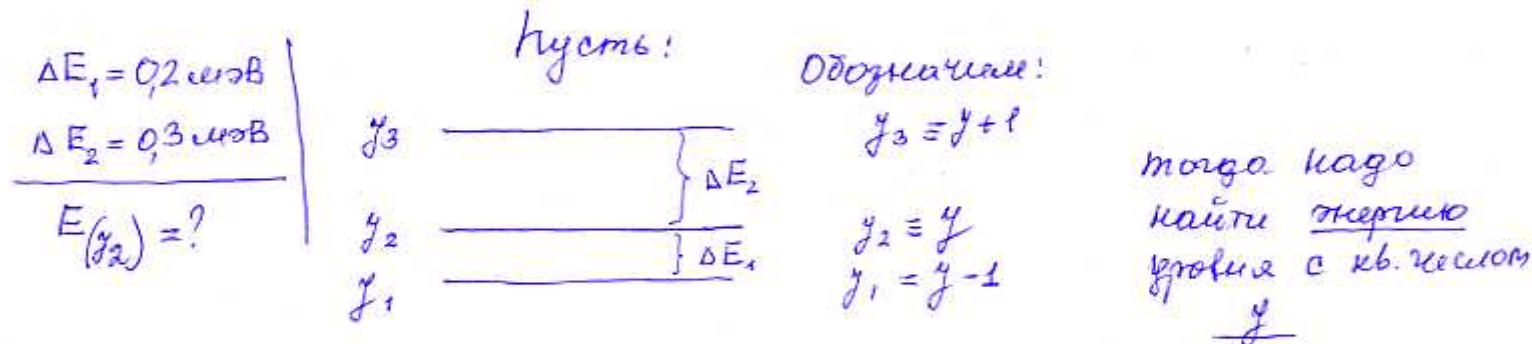 ΔE₁ = 0,2 мэВ
ΔE₂ = 0,3 мэВ
E(y₂) = ?
Пусть:
y₃
y₂
y₁
ΔE₂
ΔE₁
Обозначим:
y₃ ≡ y + 1
y₂ ≡ y
y₁ = y - 1
тогда надо
найти энергию
уровня с кв. числом
y